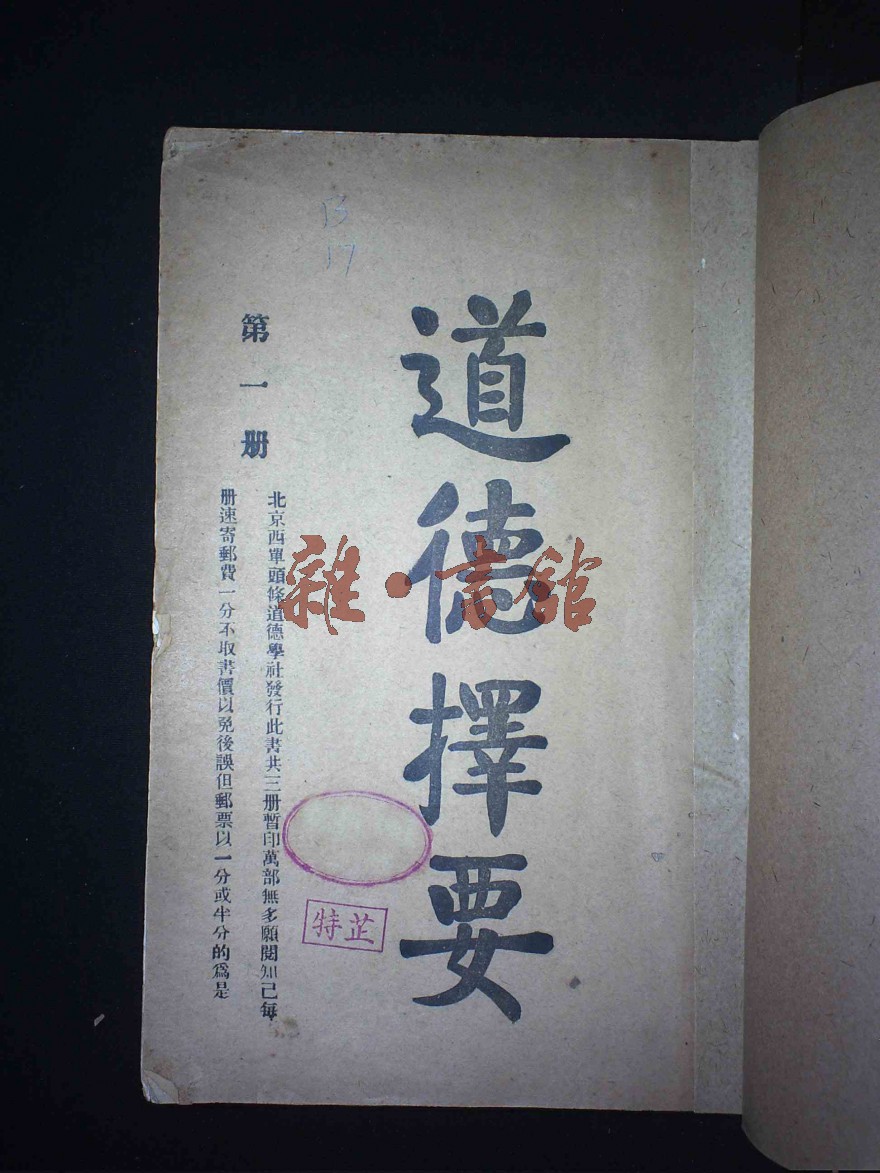 道德擇要
第一册
北京西單頭條道德學社發行此書共三册暫印萬部無多願閱知己每
册速寄郵費一分不取書價以免後誤但郵票以一分或半分的爲是
B
17
雜·信館
特芷